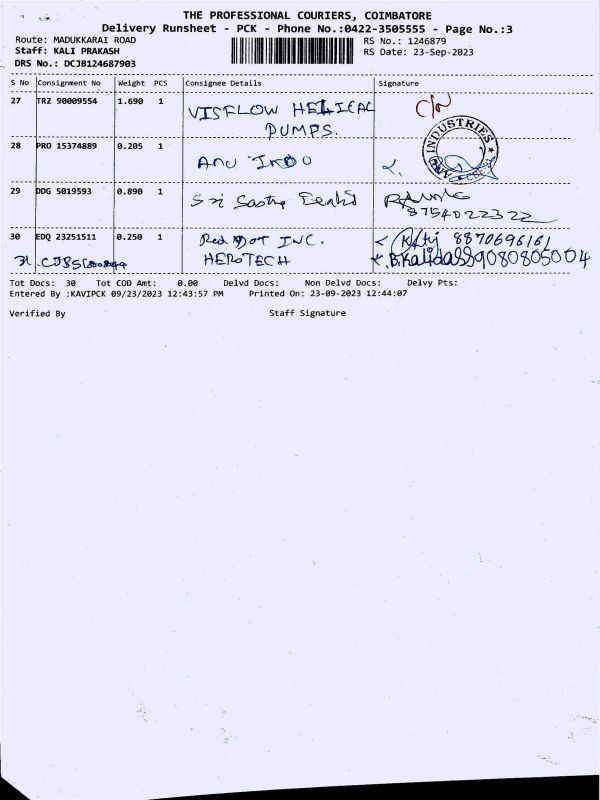 THE PROFESSIONAL COURIERS, COIMBATORE
Delivery Runsheet - PCK - Phone No.:0422-3505555 - Page No.:3
Route: MADUKKARAI ROAD RS No.: 1246879
Staff: KALI PRAKASH RS Date: 23-Sep-2023
DRS No.: DCJB124687903
S No Consignment No Weight PCS Consignee Details Signature
27 TRZ 90009554 1.690 1 VISFLOW HELICAL C/N
PUMPS.
INDUSTRIES
28 PRO 15374889 0.205 1 ANU INDO
29 DDG 5019593 0.890 1 Sri
8754022322
30 EDQ 23251511 0.250 1 Red Dot INC. 8870696161
31 HEROTECH B.Kalidass 9080805004
Tot Docs: 30 Tot COD Amt: 0.00 Delvd Docs: Non Delvd Docs: Delvy Pts:
Entered By :KAVIPCK 09/23/2023 12:43:57 PM Printed On: 23-09-2023 12:44:07
Verified By Staff Signature